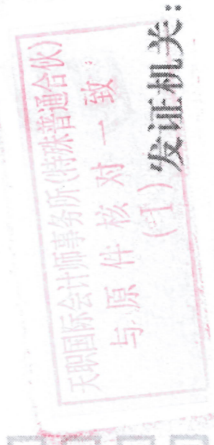 天职国际会计师事务所(特殊普通合伙)
与原件核对一致
(1)
发证机关：